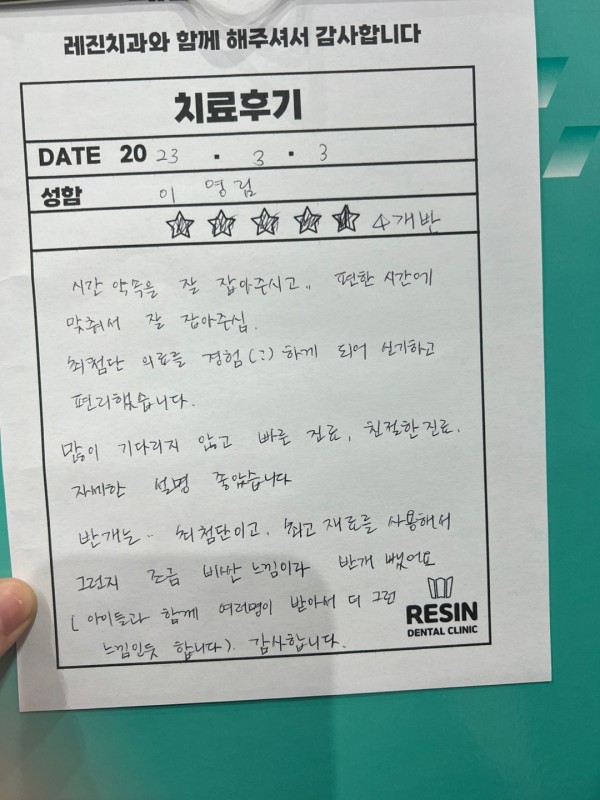 레진치과와 함께 해주셔서 감사합니다
치료후기
DATE 2023 . 3 . 3
성함 이영림
4개반
시간 약속을 잘 잡아주시고.. 편한 시간에
맞춰서 잘 잡아주심.
최첨단 의료를 경험(:) 하게 되어 신기하고
편리했습니다.
많이 기다리지 않고 빠른 진료, 친절한 진료.
자세한 설명 좋았습니다
반개는.. 최첨단이고, 최고 재료를 사용해서
그런지 조금 비싼 느낌이라 반개 뺐어요
( 아이들과 함께 여러명이 받아서 더 그런
느낌인듯 합니다). 감사합니다.
RESIN
DENTAL CLINIC